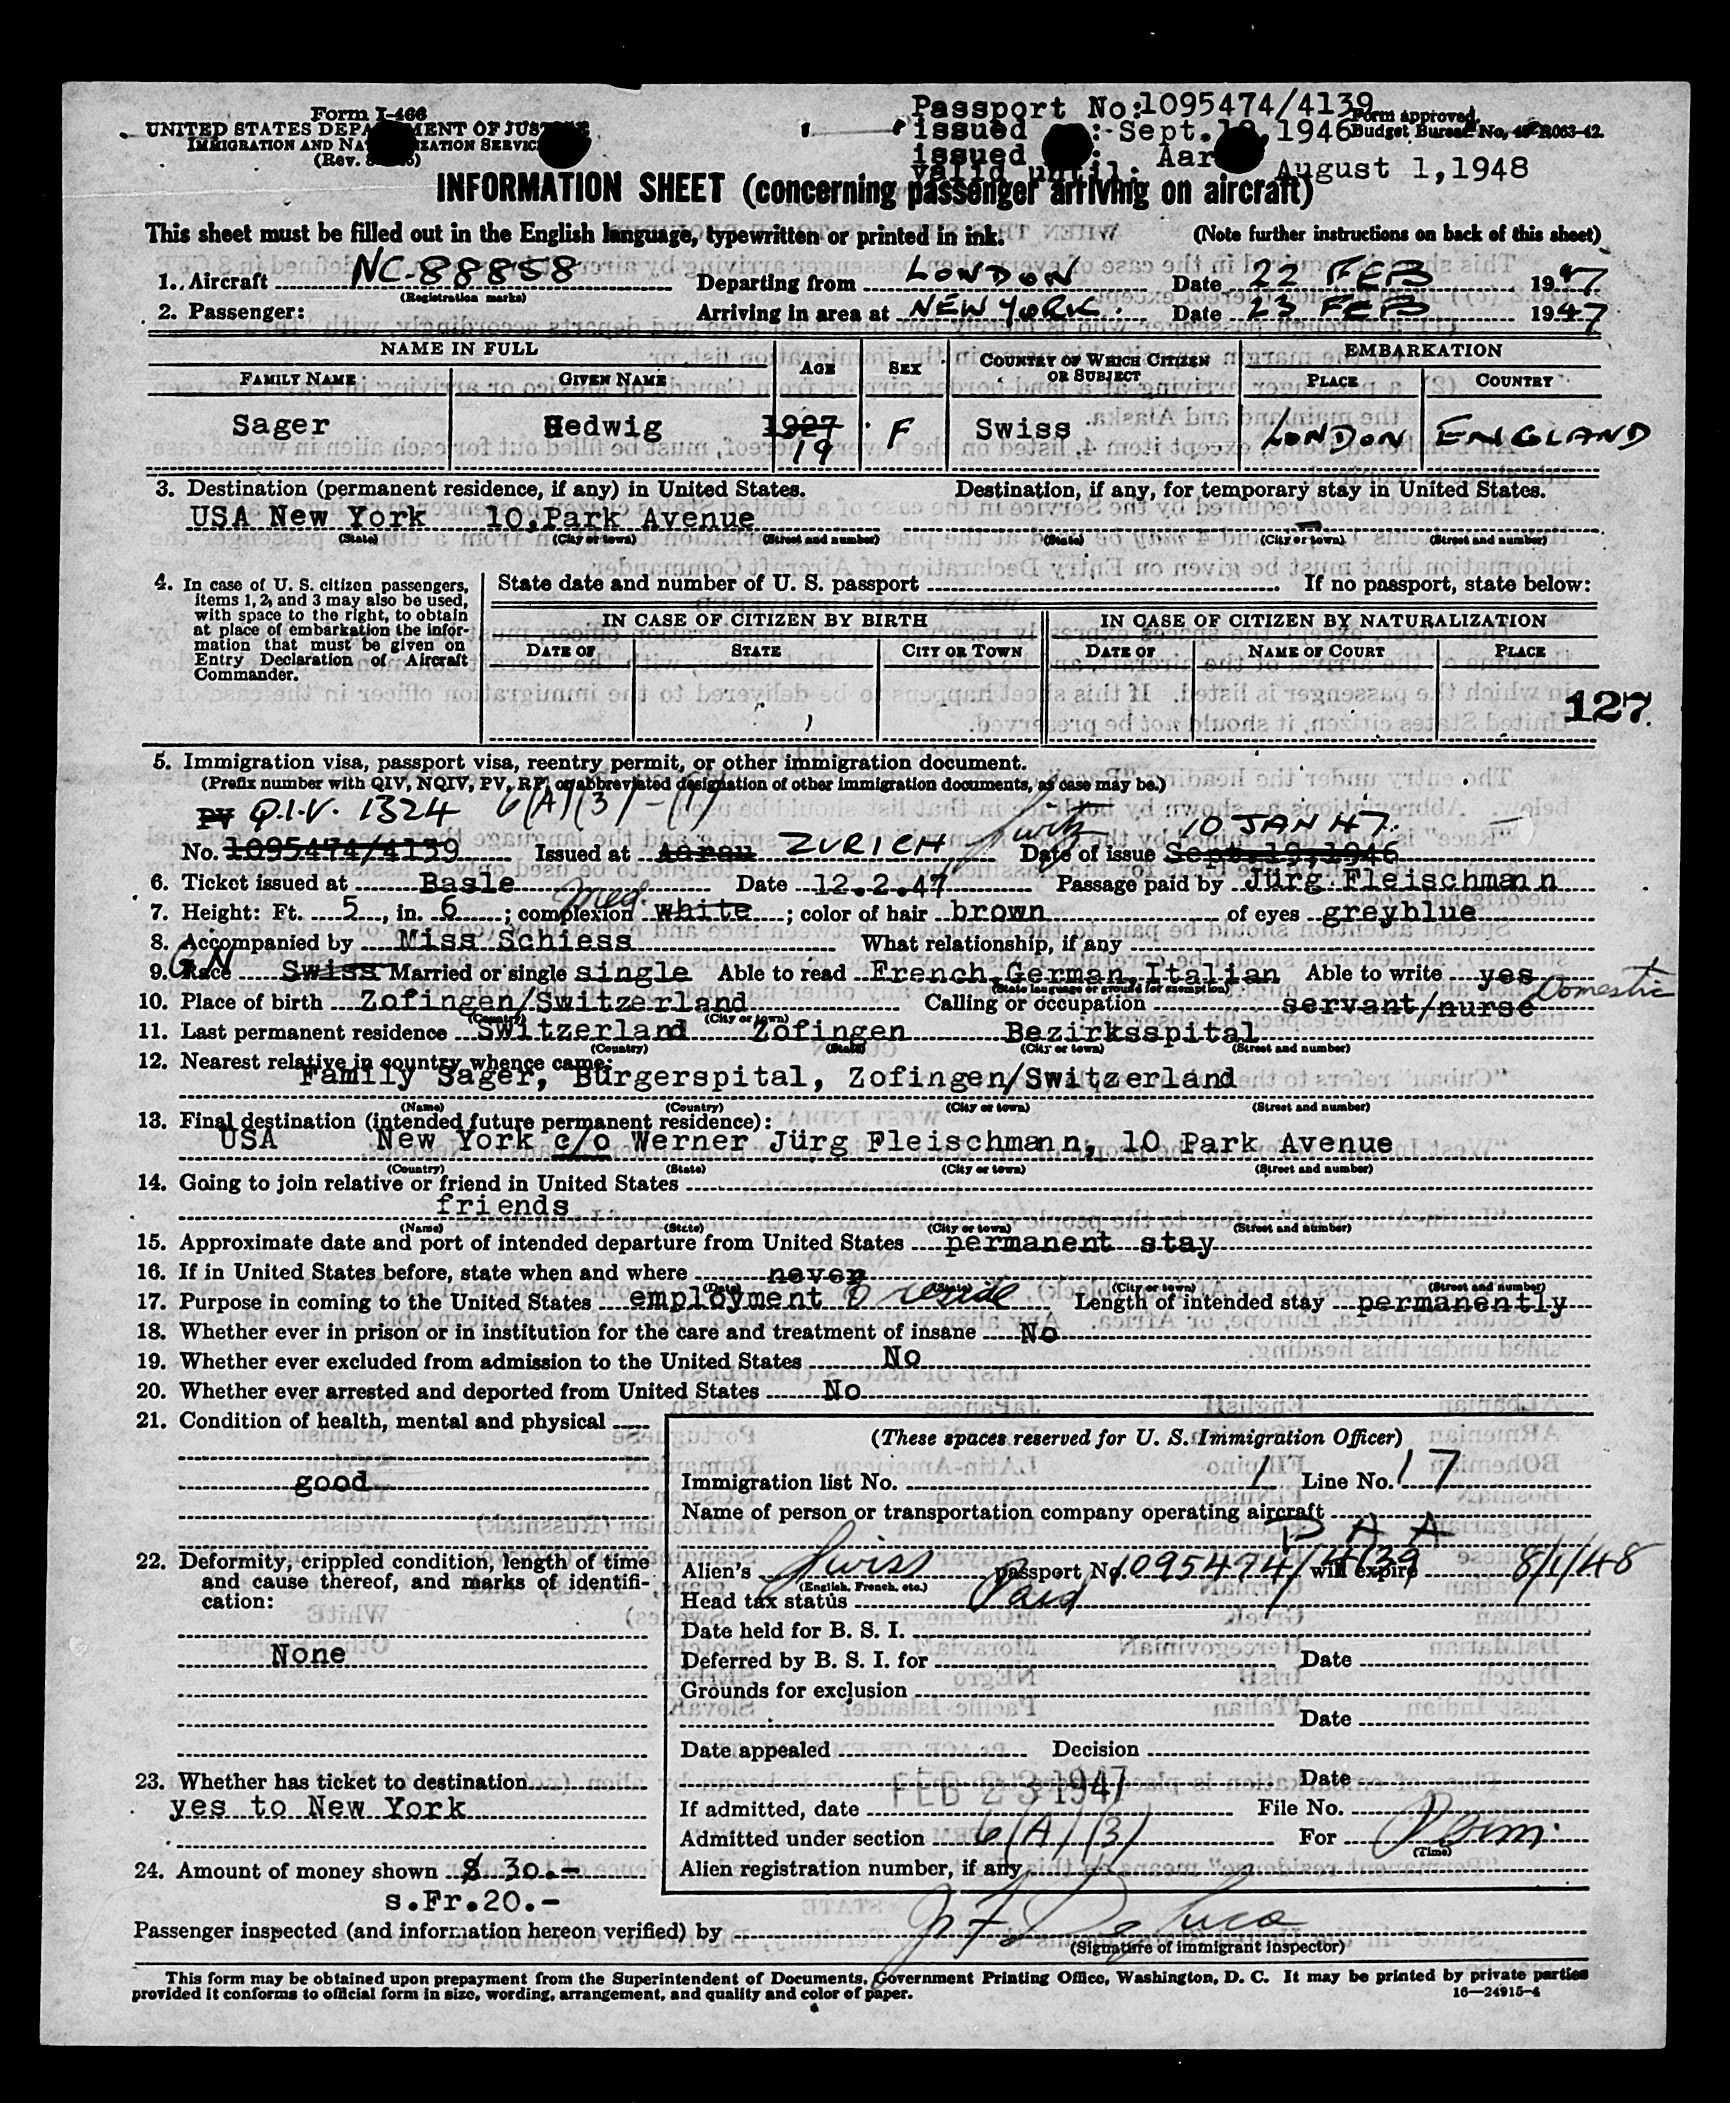 Form I-466
UNITED STATES DEPARTMENT OF JUSTICE
IMMIGRATION AND NATURALIZATION SERVICE
(Rev.
Passport No:1095474/4139
issued : Sept. 1946
issued : Aar
valid until: August 1,1948
Form approved.
Budget Bureau No. 43-R063-42.
INFORMATION SHEET (concerning passenger arriving on aircraft)
This sheet must be filled out in the English language, typewritten or printed in ink. (Note further instructions on back of this sheet)
1. Aircraft NC-88858 Departing from LONDON Date 22 FEB 1947
(Registration marks)
2. Passenger: Arriving in area at NEW YORK. Date 23 FEB 1947
NAME IN FULL AGE SEX COUNTRY OF WHICH CITIZEN OR SUBJECT EMBARKATION
FAMILY NAME GIVEN NAME PLACE COUNTRY
Sager Hedwig 1927 F Swiss LONDON ENGLAND
19
3. Destination (permanent residence, if any) in United States. Destination, if any, for temporary stay in United States.
USA New York 10,Park Avenue –
(State) (City or town) (Street and number) (State) (City or town) (Street and number)
4. In case of U. S. citizen passengers, items 1, 2, and 3 may also be used, with space to the right, to obtain at place of embarkation the information that must be given on Entry Declaration of Aircraft Commander.
State date and number of U. S. passport If no passport, state below:
IN CASE OF CITIZEN BY BIRTH IN CASE OF CITIZEN BY NATURALIZATION
DATE OF STATE CITY OR TOWN DATE OF NAME OF COURT PLACE
127
5. Immigration visa, passport visa, reentry permit, or other immigration document.
(Prefix number with QIV, NQIV, PV, RP, or abbreviated designation of other immigration documents, as case may be.)
PV Q.I.V. 1324 6(A)(3)-(1) 10 JAN 47.
No. 1095474/4139 Issued at Aarau ZURICH Switz Date of issue Sept.19,1946
6. Ticket issued at Basle Date 12.2.47 Passage paid by Jürg Fleischmann
7. Height: Ft. 5, in. 6; complexion white Med.; color of hair brown of eyes greyblue
8. Accompanied by Miss Schiess What relationship, if any
9. Race Swiss GN Married or single single Able to read French,German,Italian Able to write yes
(State language or ground for exemption)
10. Place of birth Zofingen/Switzerland Calling or occupation servant/nurse Domestic
(Country) (City or town)
11. Last permanent residence Switzerland Zofingen Bezirksspital
(Country) (State) (City or town) (Street and number)
12. Nearest relative in country whence came:
Family Sager, Bürgerspital, Zofingen/Switzerland
(Name) (Country) (City or town) (Street and number)
13. Final destination (intended future permanent residence):
USA New York c/o Werner Jürg Fleischmann, 10 Park Avenue
(Country) (State) (City or town) (Street and number)
14. Going to join relative or friend in United States
friends
(Name) (State) (City or town) (Street and number)
15. Approximate date and port of intended departure from United States permanent stay
16. If in United States before, state when and where never
(Date) (State) (City or town) (Street and number)
17. Purpose in coming to the United States employment & reside Length of intended stay permanently
18. Whether ever in prison or in institution for the care and treatment of insane No
19. Whether ever excluded from admission to the United States No
20. Whether ever arrested and deported from United States No
21. Condition of health, mental and physical
good
22. Deformity, crippled condition, length of time and cause thereof, and marks of identification:
None
23. Whether has ticket to destination
yes to New York
24. Amount of money shown $ 30.-
s.Fr.20.-
(These spaces reserved for U. S. Immigration Officer)
Immigration list No. 1 Line No. 17
Name of person or transportation company operating aircraft
P A A
Alien's Swiss passport No. 1095474/4139 will expire 8/1/48
(English, French, etc.)
Head tax status Paid
Date held for B. S. I.
Deferred by B. S. I. for Date
Grounds for exclusion
Date
Date appealed Decision
Date
If admitted, date FEB 23 1947 File No.
Admitted under section 6(A)(3) For Perm.
(Time)
Alien registration number, if any
Passenger inspected (and information hereon verified) by J F DeLuca
(Signature of immigrant inspector)
This form may be obtained upon prepayment from the Superintendent of Documents, Government Printing Office, Washington, D. C. It may be printed by private parties
provided it conforms to official form in size, wording, arrangement, and quality and color of paper. 16—24915-4